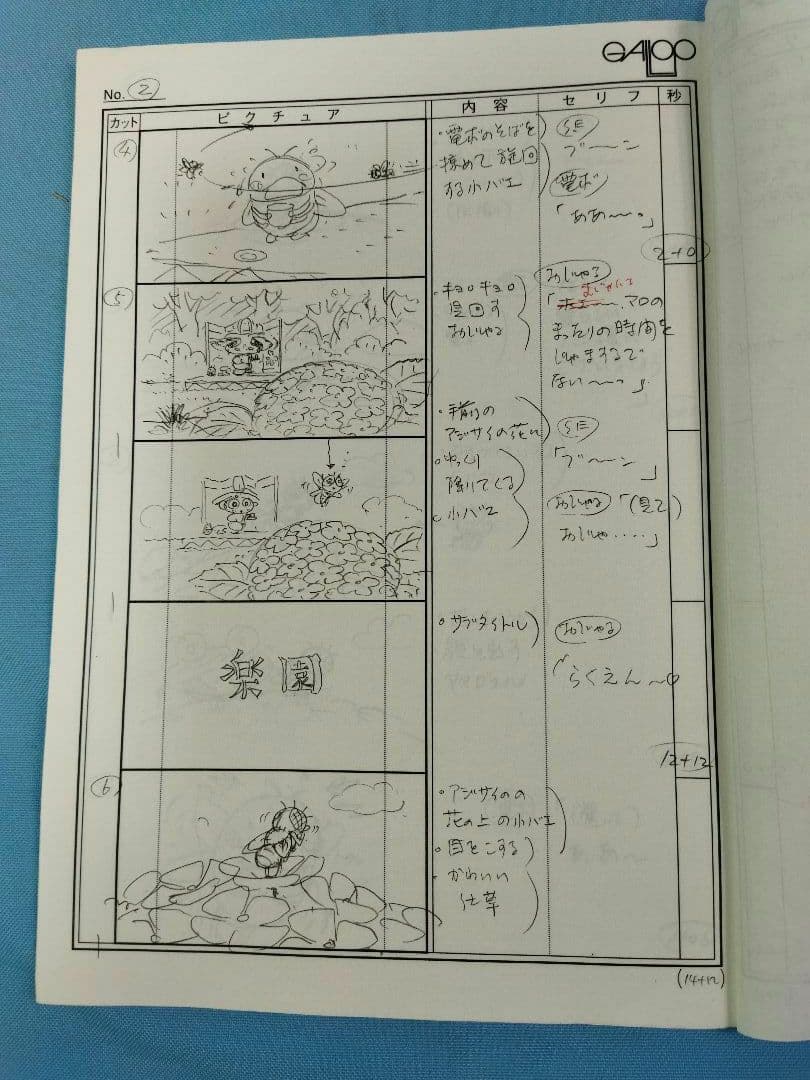 GALLOP
No. 2
カット ピクチュア 内容 セリフ 秒
4
・電ボのそばを
掠めて旋回
する小バエ
SE
ブ〜〜ン
電ボ
「ああ〜〜。」
2+0
5
・キョロキョロ
見回す
おじゃる
おじゃる
「マロの
まったりの時間を
じゃまするで
ない〜〜っ」
・手前の
アジサイの花に
・ゆっくり
降りてくる
・小バエ
SE
「ブ〜〜ン」
おじゃる「(見て)
おじゃ・・・・」
楽園
・サブタイトル
おじゃる
「らくえん〜
12+12
6
・アジサイの
花の上の小バエ
・目をこする
・かわいい
仕草
(14+12)